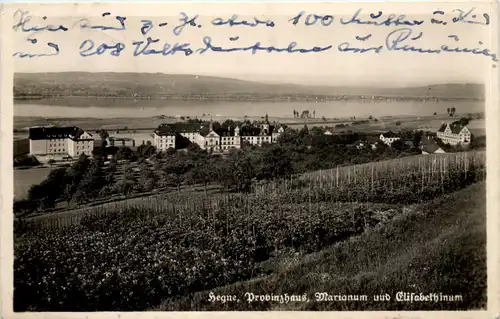 Hier sind z. Zt. etwa 100 Mütter u. Kinder
208 Volksdeutsche aus Rumänien.
Hegne, Provinzhaus, Marianum und Elisabethinum